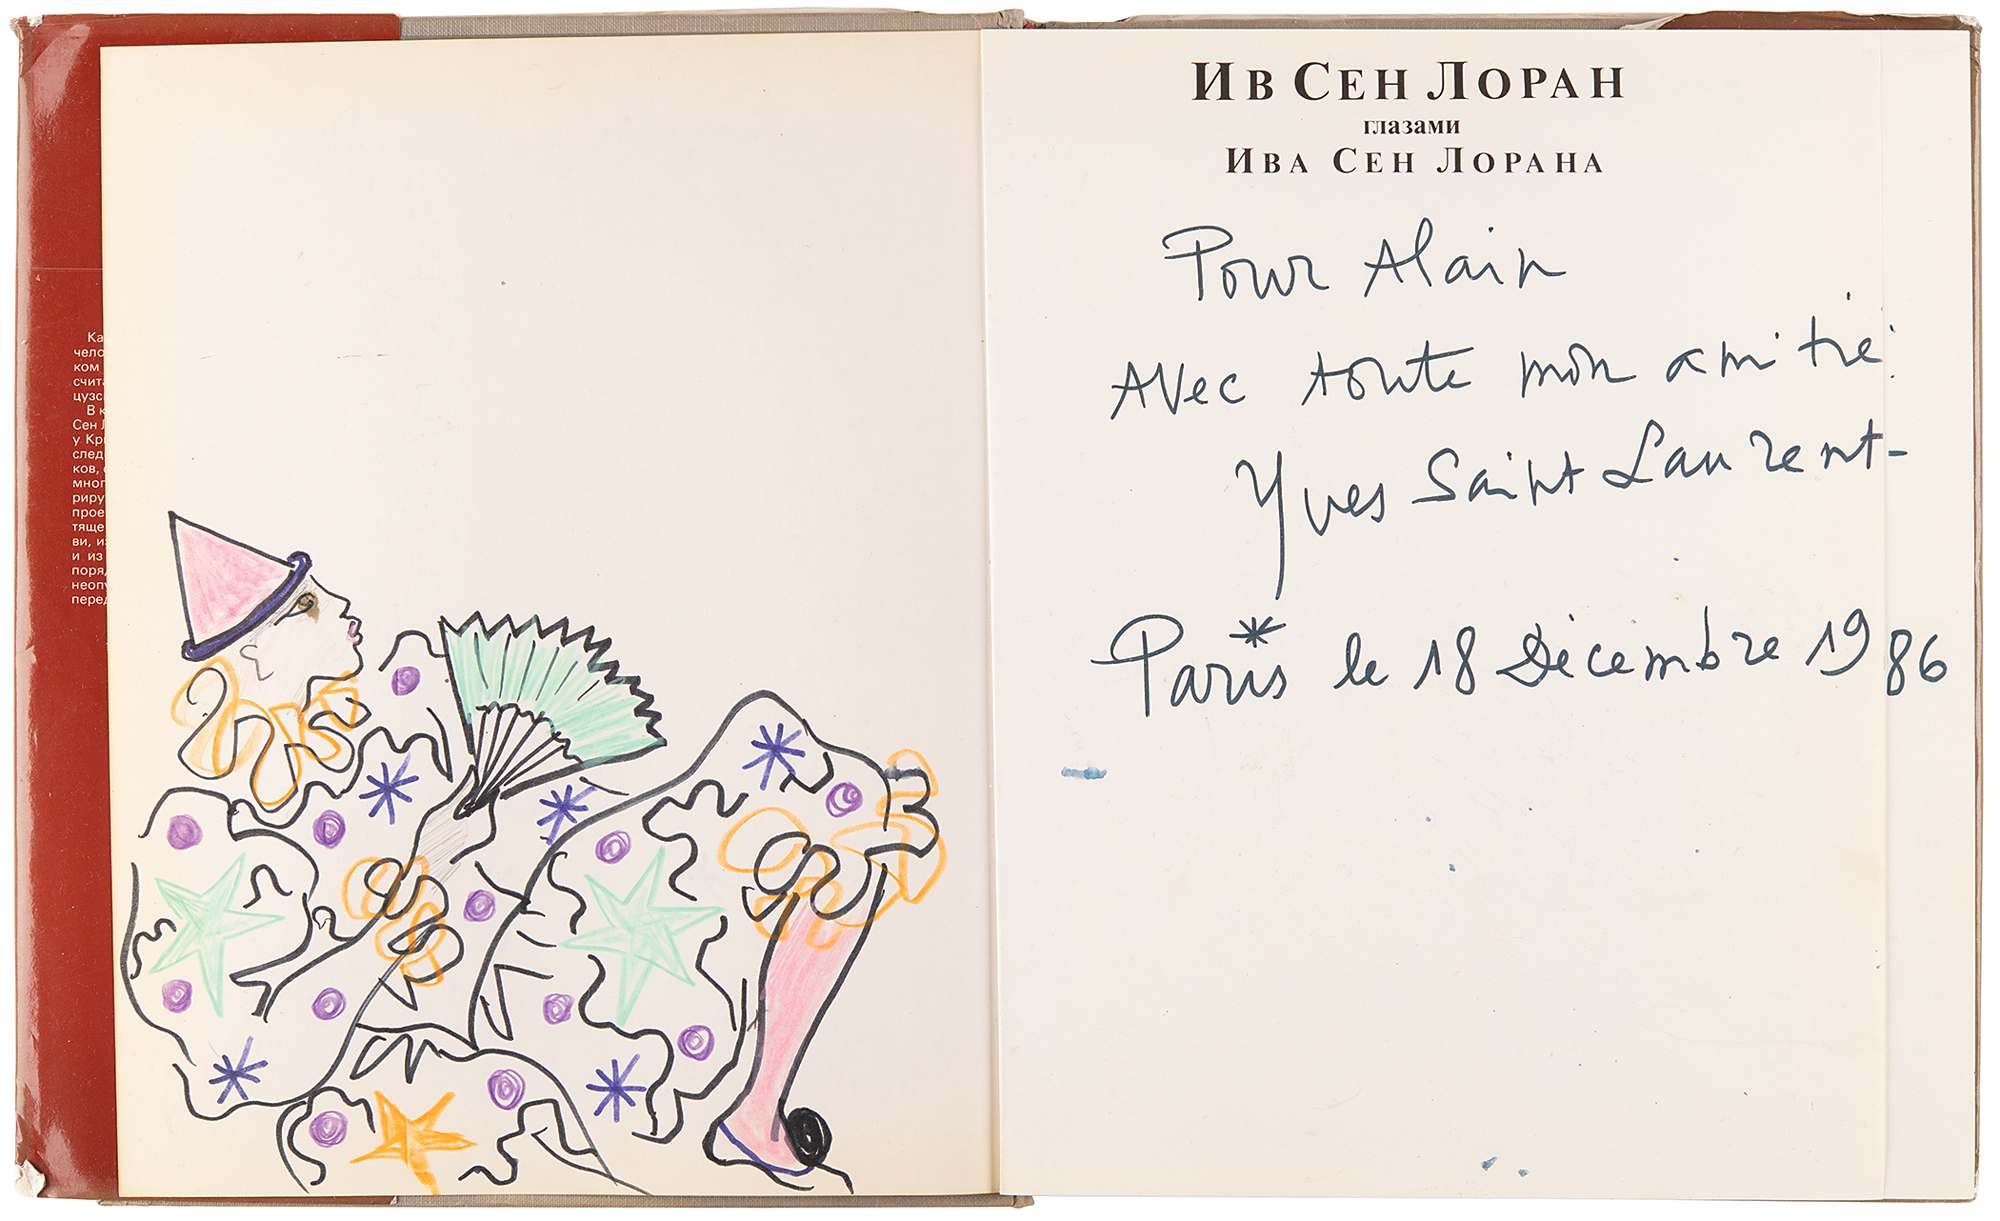 Ка
чело
ком
счит
цузс
В к
Сен Л
у Кр
след
ков,
мног
риру
прое
тяще
ви, из
и из
поря
неопу
перед
Ив Сен Лоран
глазами
Ива Сен Лорана
Pour Alain
Avec toute mon amitié
Yves Saint Laurent
Paris le 18 Décembre 1986